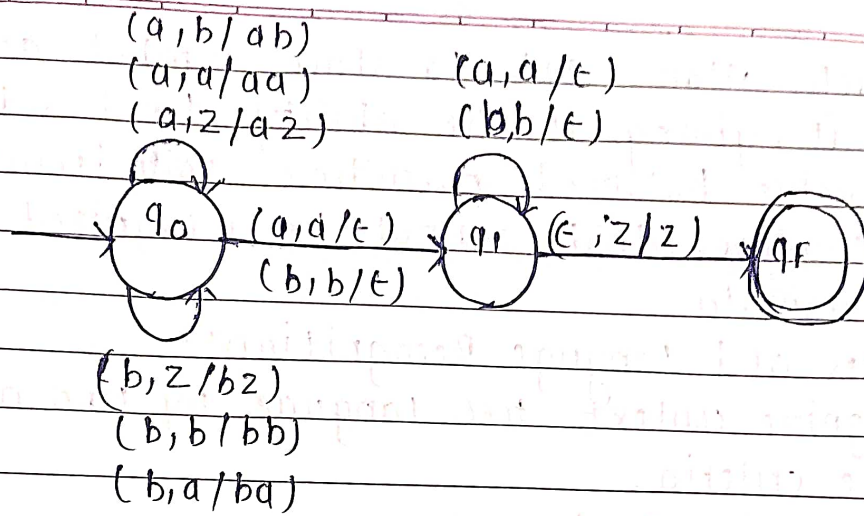 (a,b/ab)
(a,a/aa)
(a,z/az)
(a,a/ϵ)
(b,b/ϵ)
q0
(a,a/ϵ)
(b,b/ϵ)
q1
(ϵ,z/z)
qF
(b,z/bz)
(b,b/bb)
(b,a/ba)